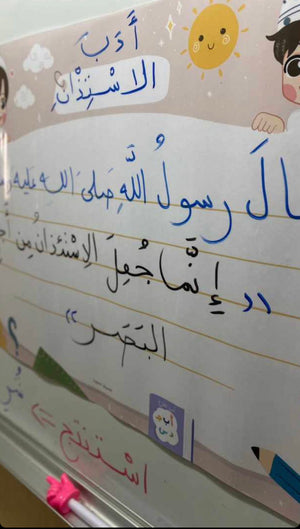 أَدَبَ
الاسْتِئْذَانِ
قالَ رسولُ اللَّهِ صَلى الله عليه
"إِنَّما جُعِلَ الِاسْتِئذانُ مِن
البَصَر"
؟
اسْتنتج ⇐